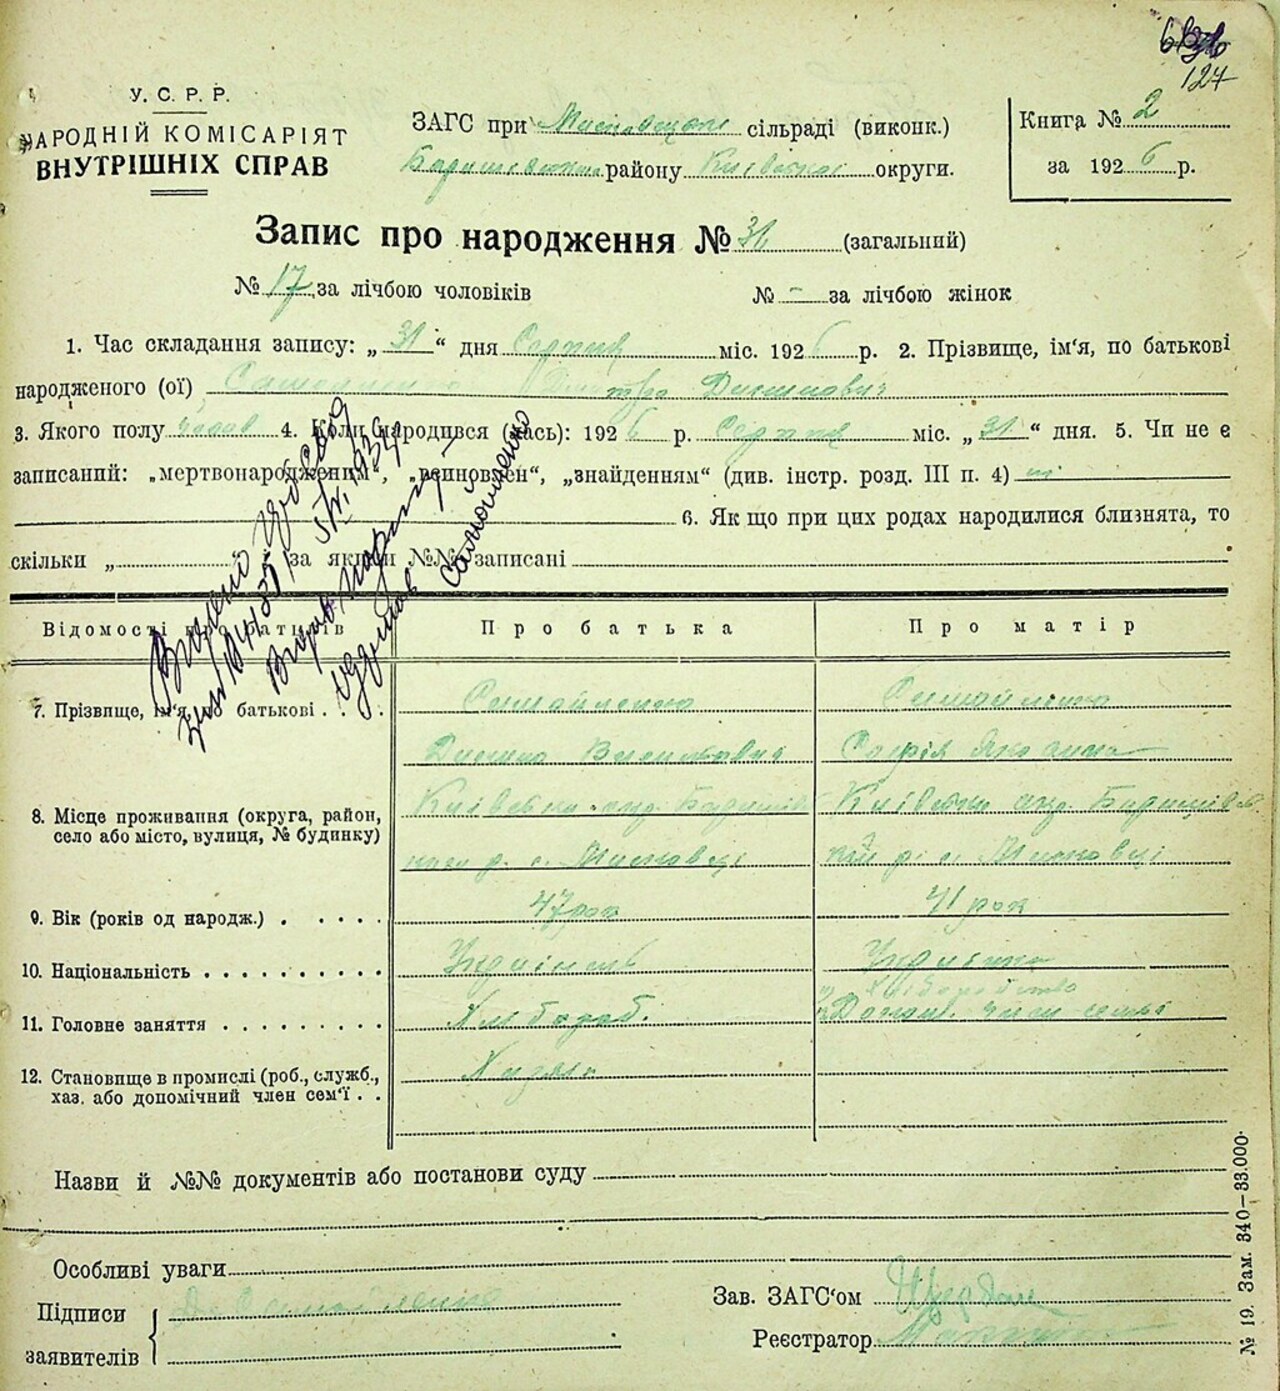 127
У. С. Р. Р.
НАРОДНІЙ КОМІСАРІЯТ
ВНУТРІШНІХ СПРАВ
ЗАГС при сільраді (виконк.)
району Київської округи.
Книга № 2
за 1926 р.
Запис про народження № 31 (загальний)
№ 17 за лічбою чоловіків № - за лічбою жінок
1. Час складання запису: „31“ дня Серпня міс. 1926 р. 2. Прізвище, ім'я, по батькові
народженого (ої) Самойленко Дмитро
3. Якого полу чолов 4. Коли народився (лась): 1926 р. Серпня міс. „31“ дня. 5. Чи не є
записаний: „мертвонародженим“, „всиновлен“, „знайденням“ (див. інстр. розд. III п. 4) ні
6. Як що при цих родах народилися близнята, то
скільки „ “ і за якими №№ записані
Видрав
Самойленко
Відомості про батьків Про батька Про матір
7. Прізвище, ім'я, по батькові . . . . Самойленко Самойленко
Софія
8. Місце проживання (округа, район,
село або місто, вулиця, № будинку)
Київська окр. Київська окр.
р. с. р. с.
9. Вік (років од народж.) . . . . . 47 рок 41 рок
10. Національність . . . . . . . . . . Українець Українка
Хліборобство
11. Головне заняття . . . . . . . . . Хлібороб. член семьі
12. Становище в промислі (роб., служб.,
хаз. або допомічний член сем'ї . . Хазяїн
Назви й №№ документів або постанови суду
Особливі уваги
Підписи
заявителів
Д. Самойленко
Зав. ЗАГС'ом
Реєстратор
№ 19. Зам. 340—33.000.